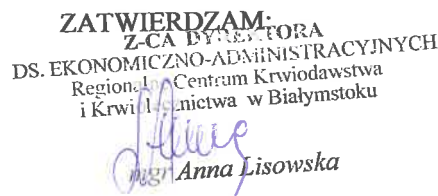 ZATWIERDZAM:
Z-CA DYREKTORA
DS. EKONOMICZNO-ADMINISTRACYJNYCH
Regionalne Centrum Krwiodawstwa
i Krwiolecznictwa w Białymstoku
mgr Anna Lisowska